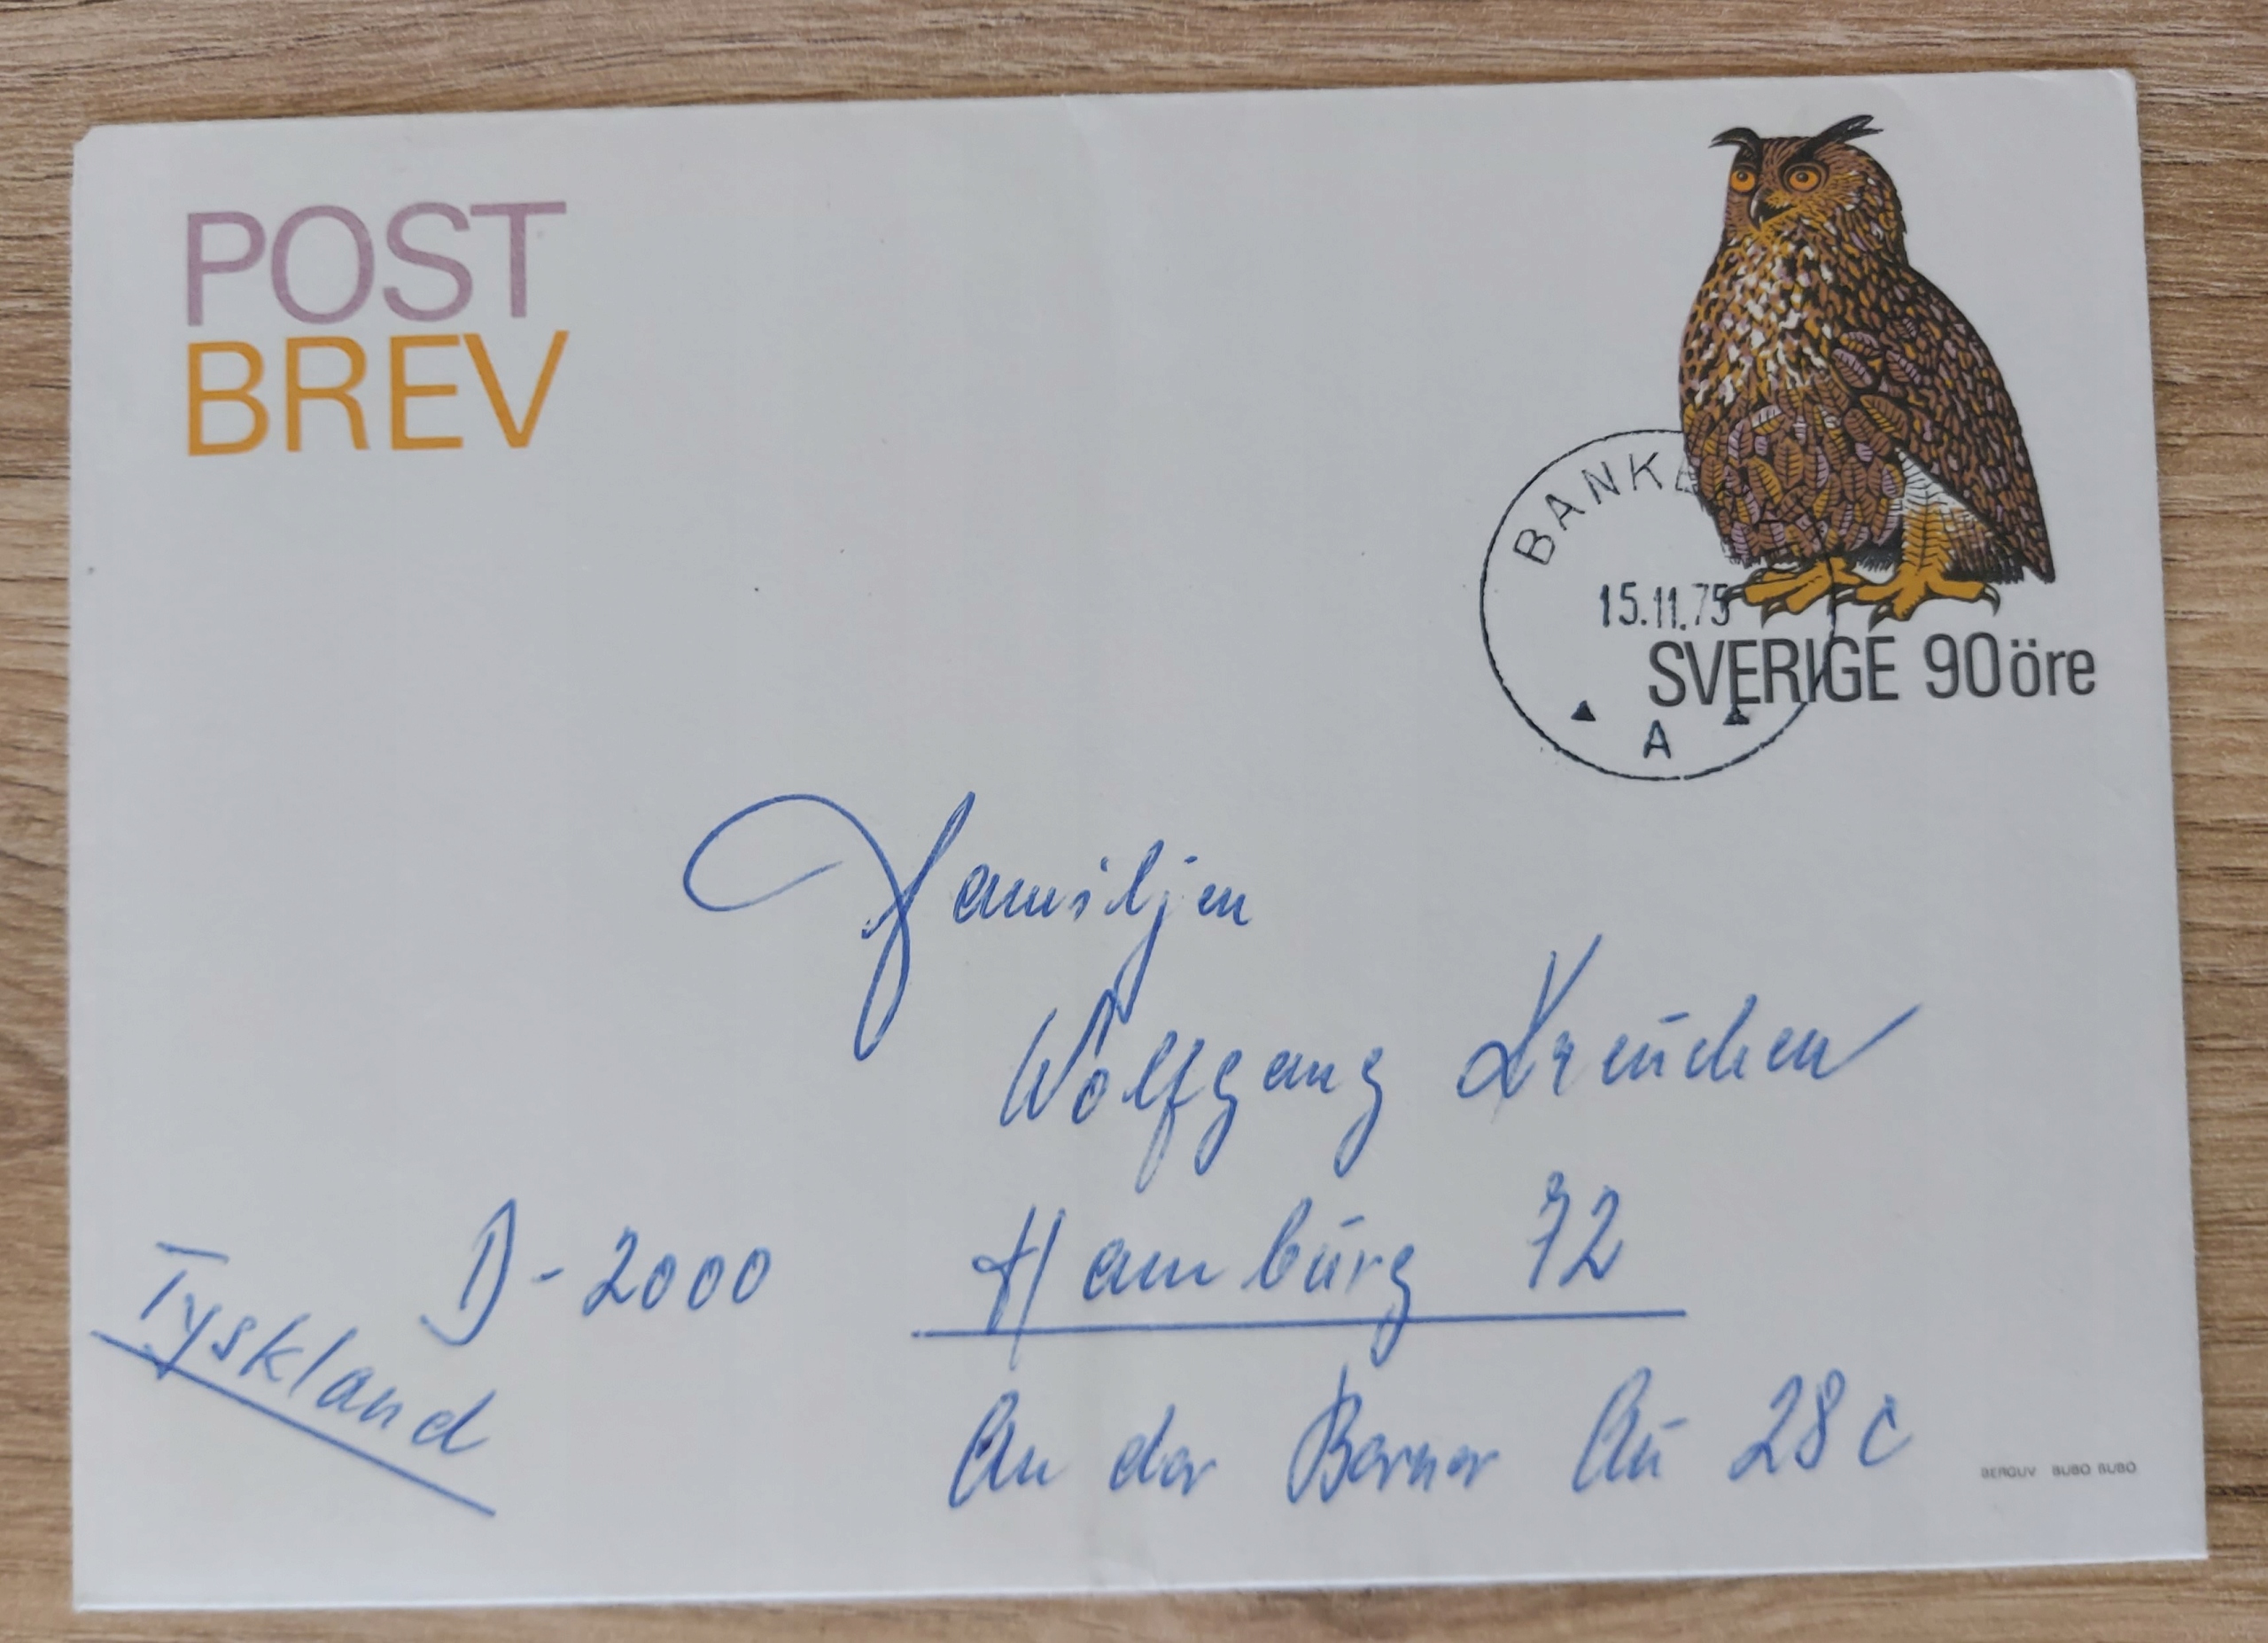 POST
BREV
BANKE
15.11.75
SVERIGE 90 öre
A
Familjen
Wolfgang
D-2000 Hamburg 72
Tyskland
An der Berner Au 28 c
BERGUV BUBO BUBO